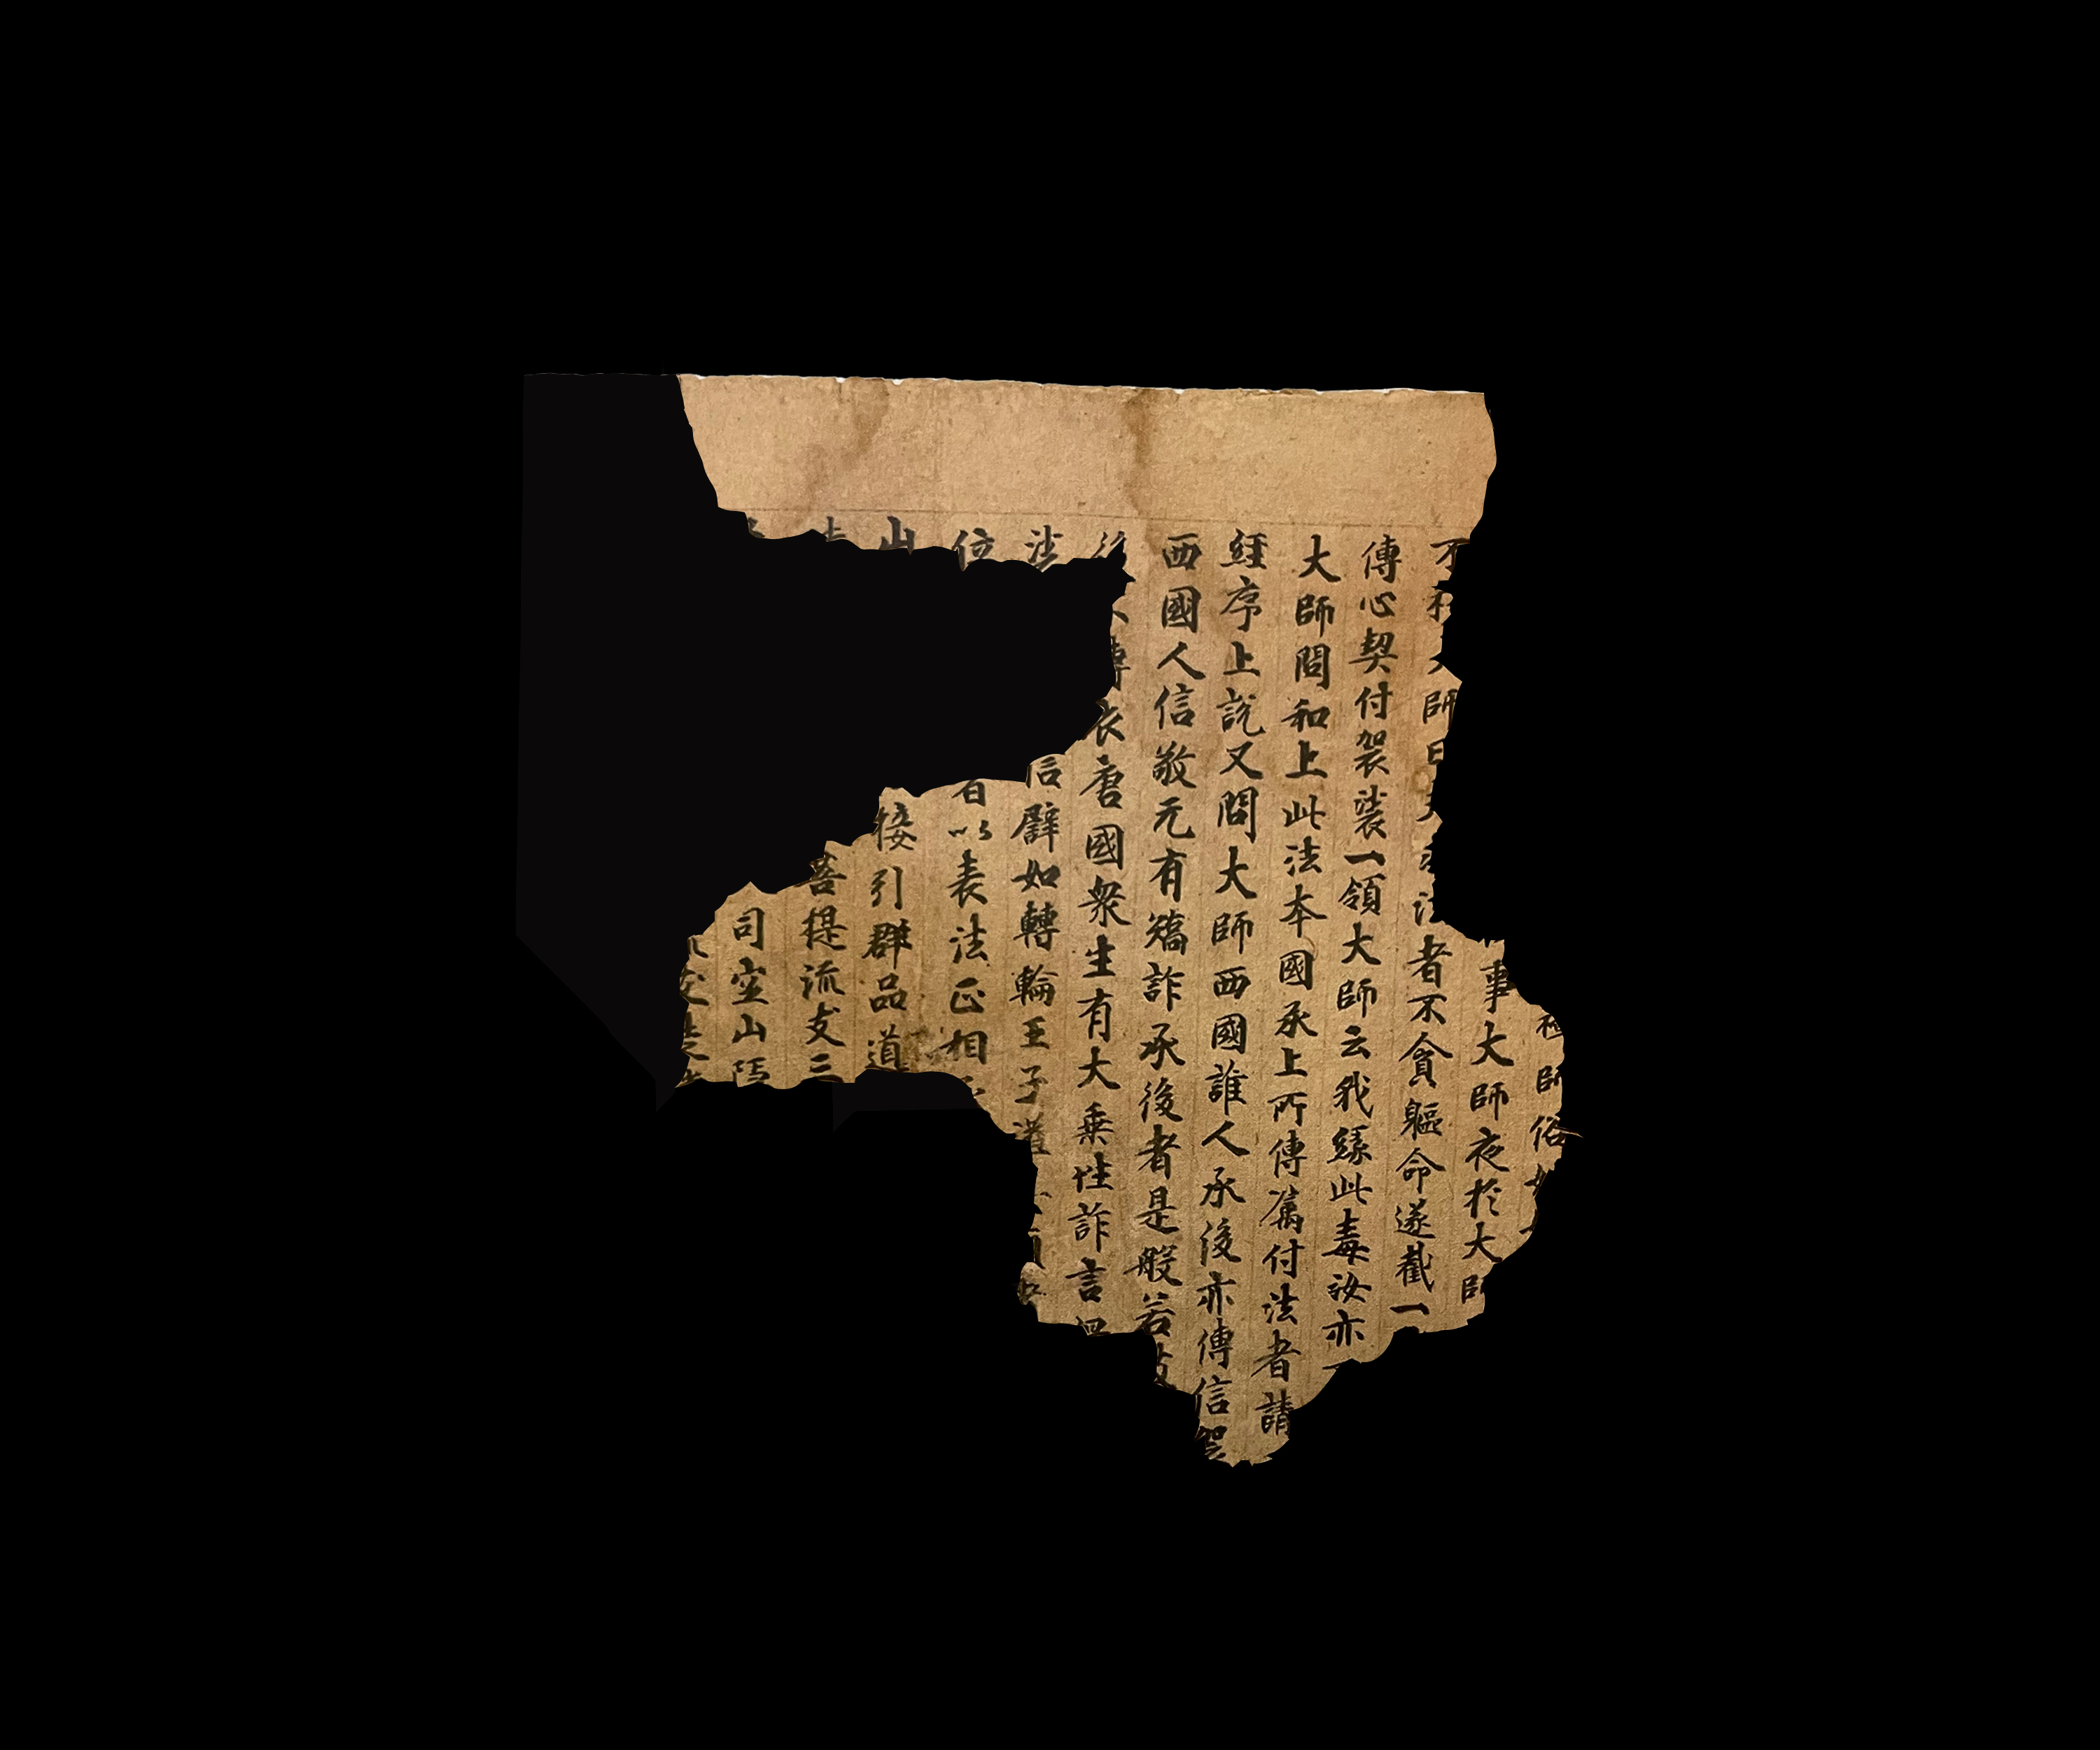 師俗
事大師夜於大師
不師者不貪軀命遂截一
傳心契付袈裟一領大師云我緣此毒汝亦
大師問和上此法本國承上所傳属付法者請
經序上說又問大師西國誰人承後亦傳信袈
西國人信敬元有矯詐承後者是般若
衣唐國衆生有大乗性詐言
法臂如轉輪王子灌
位以表法正相
山接引群品道
菩提流支三
司空山